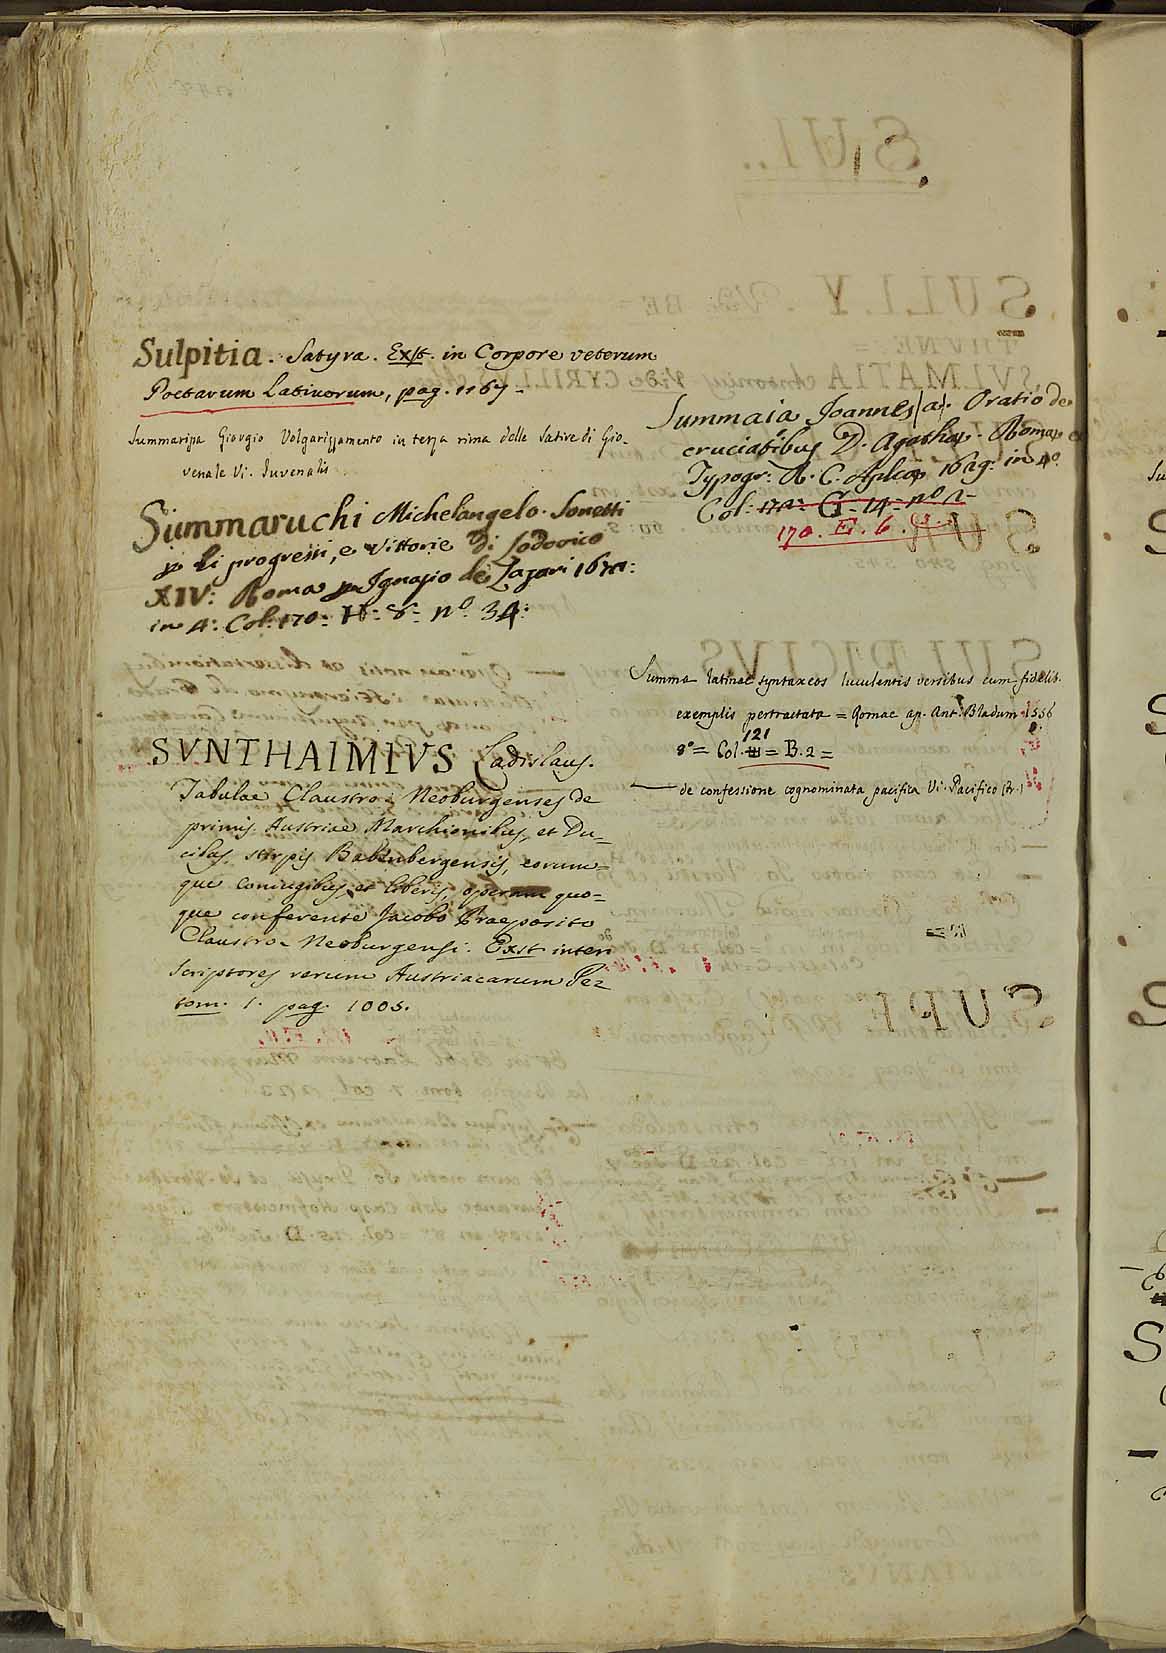 Sulpitia. Satyra. Exst. in Corpore veterum
Poetarum Latinorum, pag. 1167 -
Summaripa Giorgio Volgarizzamento in terza rima delle Satire di Gio-
venale Vi. Juvenalis
Summaruchi Michelangelo. Sonetti
p li progressi, e Vittorie di Lodovico
XIV: Roma p Ignazio de Lazari 1672:
in 4: Col: 170: H: 8: nº 34:
SVNTHAIMIVS Ladislaus.
Tabulae Claustro-Neoburgenses de
primis Austriae Marchionibus, et Du-
cibus stirpis Babenbergensis, eorum-
que coniugibus et liberis, operam quo-
que conferente Jacobo Praeposito
Claustro-Neoburgensi. Exst inter
Scriptores rerum Austriacarum Pez
tom. 1. pag. 1005.
Summaia Joannes a. Oratio de
cruciatibus D. Agathae. Romae ex
Typogr: R. C. Aplcae 1629: in 4º
Col: G. 14. nº
170. E. 6.
Summa latinae syntaxeos luculentis versibus cum fidelib.
exemplis pertractata = Romae ap. Ant. Bladum 1556
121
8º = Col. = B. 2 =
— de confessione cognominata pacifica Vi. Pacifico (Fr.)